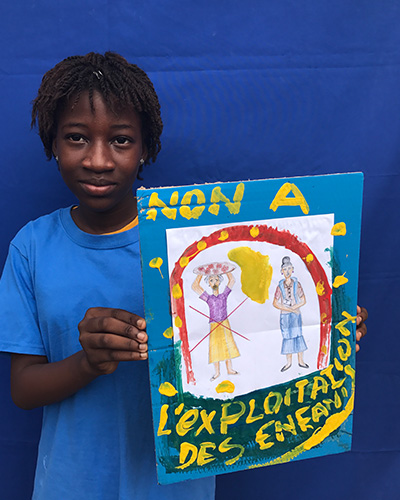 NON A
L'EXPLOITATION
DES ENFANTS